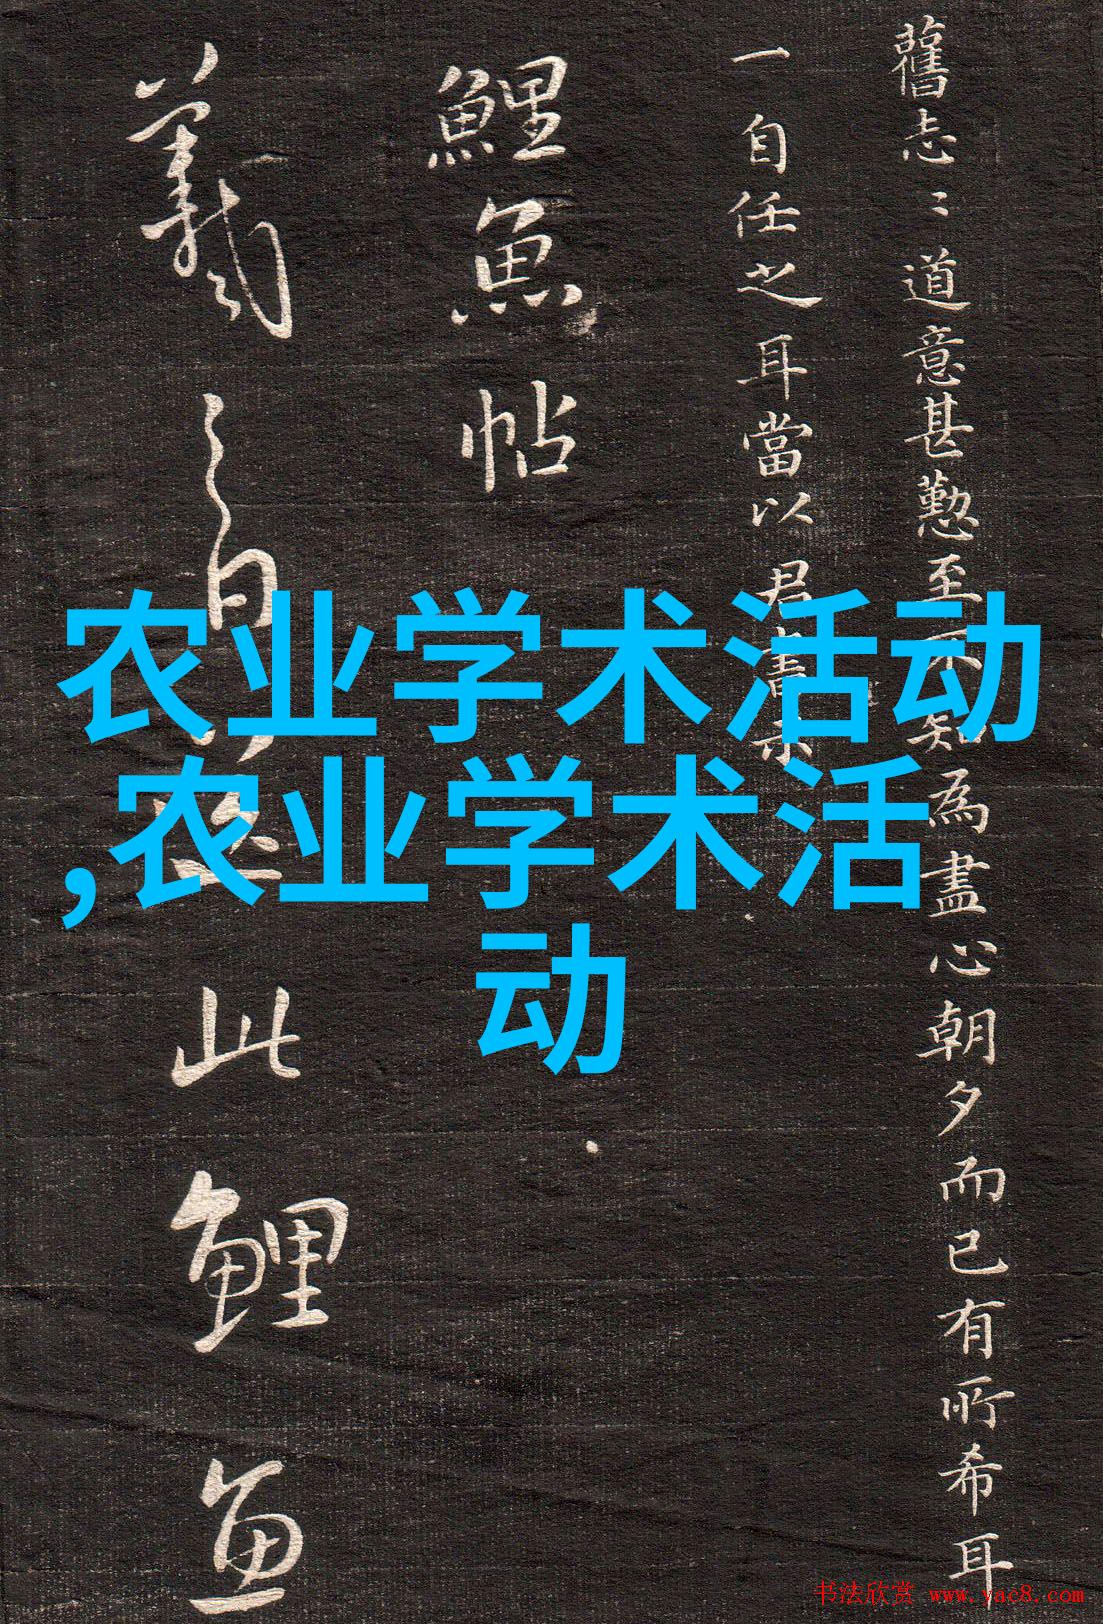 舊志〻道意甚懃至不知為盡心朝夕而已有所希耳
一自任之耳當以君書示
鯉魚帖
羲之白送此鯉魚
农业学术活动
,农业学术活
动
书法欣赏 www.yac8.com